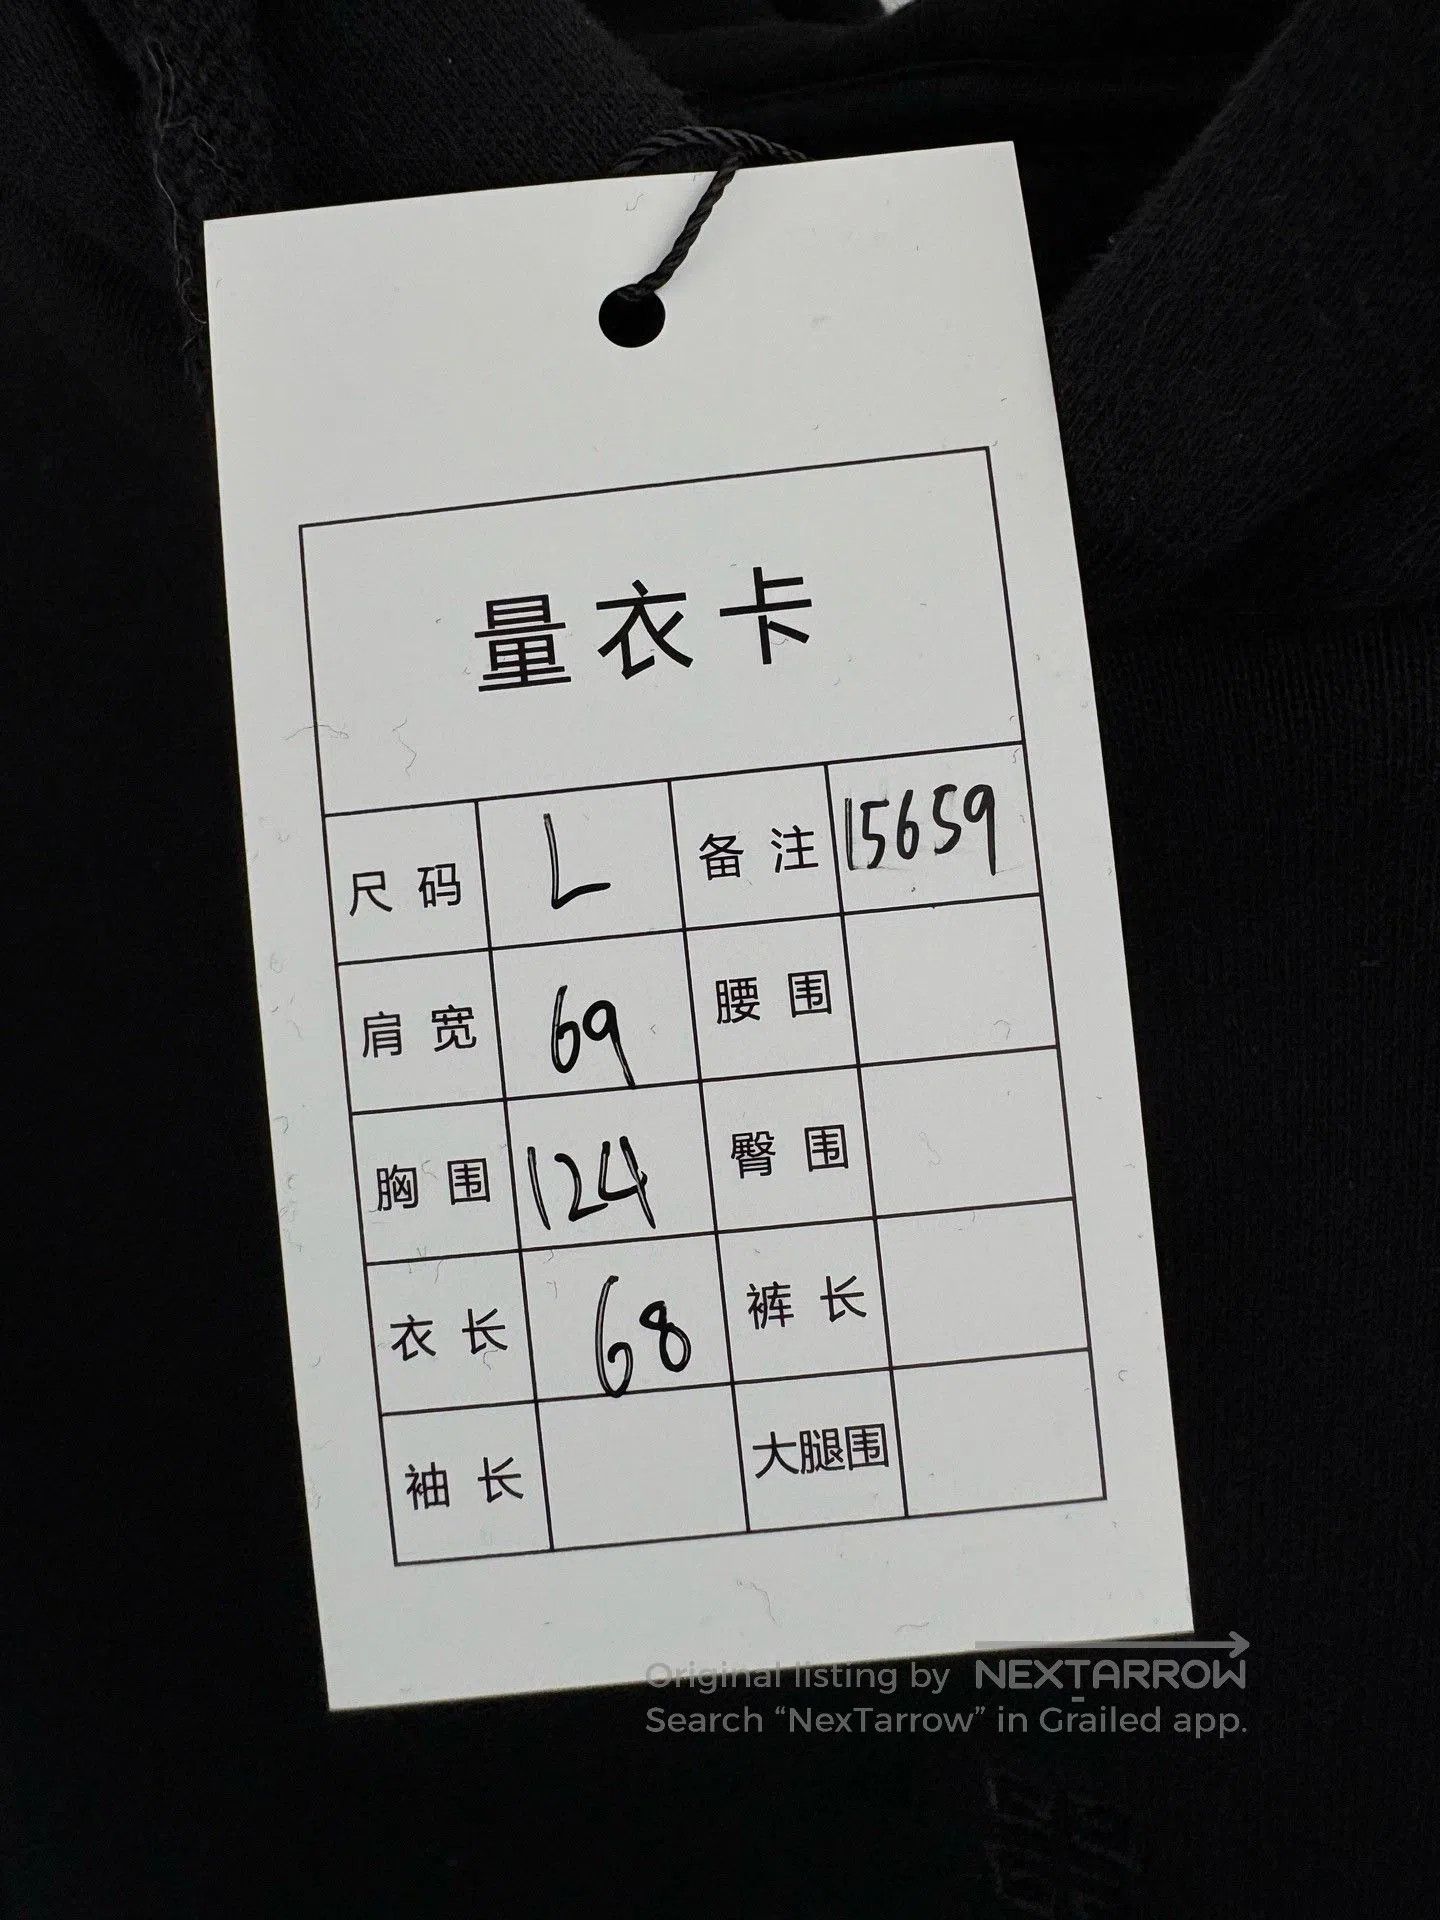 量衣卡
尺码 L 备注 15659
肩宽 69 腰围
胸围 124 臀围
衣长 68 裤长
袖长 大腿围
Original listing by NEXTARROW
Search “NexTarrow” in Grailed app.